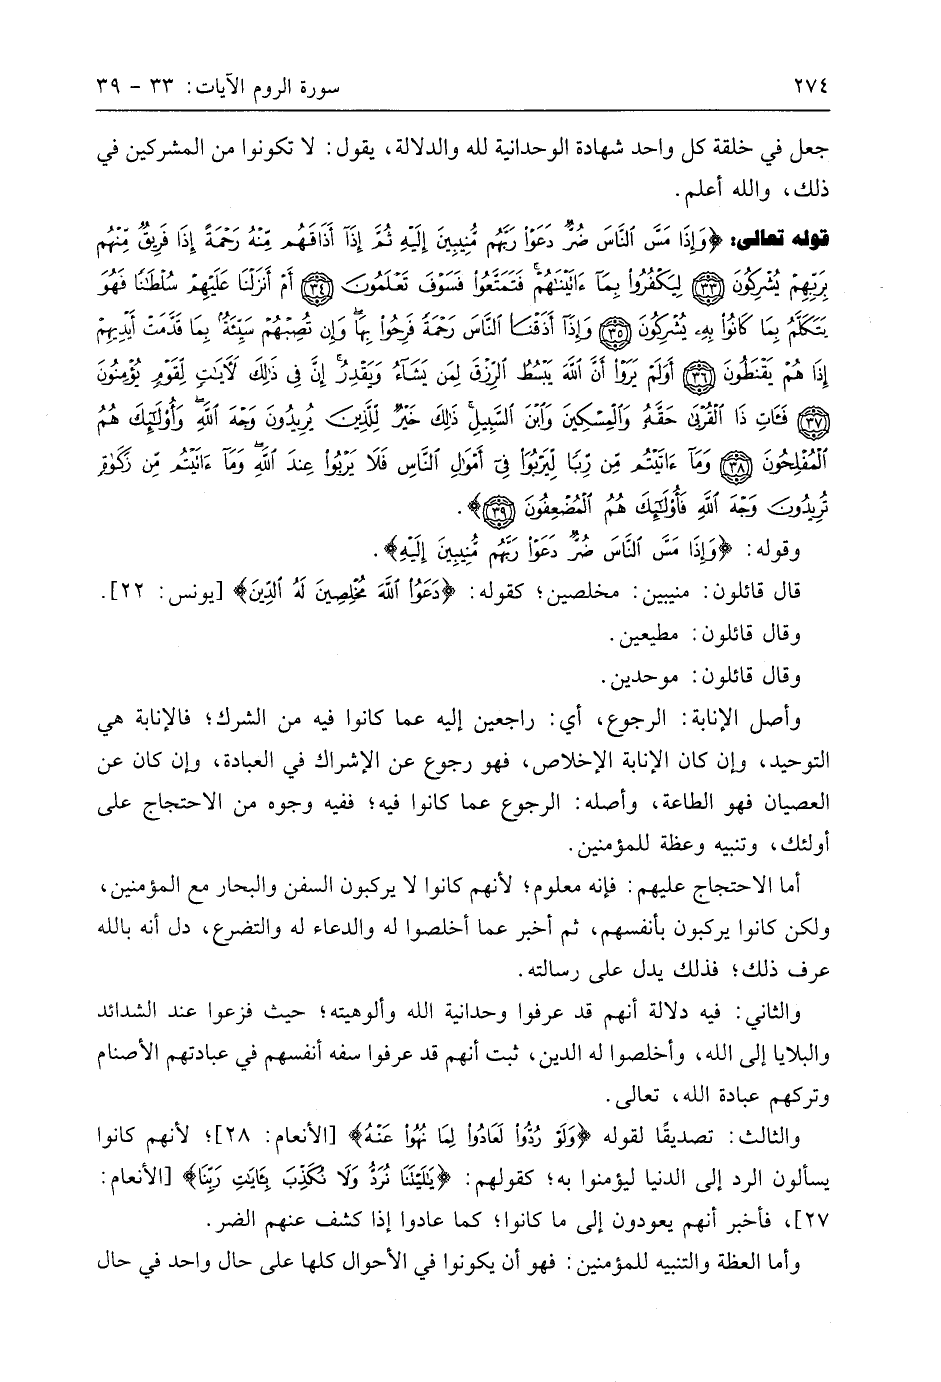 ٢٧٤ سورة الروم الآيات: ٣٣ - ٣٩
جعل في خلقة كل واحد شهادة الوحدانية لله والدلالة، يقول: لا تكونوا من المشركين في
ذلك، والله أعلم.
قوله تعالى: ﴿وَإِذَا مَسَّ ٱلنَّاسَ ضُرٌّ دَعَوْا۟ رَبَّهُم مُّنِيبِينَ إِلَيْهِ ثُمَّ إِذَآ أَذَاقَهُم مِّنْهُ رَحْمَةً إِذَا فَرِيقٌ مِّنْهُم
بِرَبِّهِمْ يُشْرِكُونَ ﴿٣٣﴾ لِيَكْفُرُوا۟ بِمَآ ءَاتَيْنَٰهُمْ ۚ فَتَمَتَّعُوا۟ فَسَوْفَ تَعْلَمُونَ ﴿٣٤﴾ أَمْ أَنزَلْنَا عَلَيْهِمْ سُلْطَٰنًا فَهُوَ
يَتَكَلَّمُ بِمَا كَانُوا۟ بِهِۦ يُشْرِكُونَ ﴿٣٥﴾ وَإِذَآ أَذَقْنَا ٱلنَّاسَ رَحْمَةً فَرِحُوا۟ بِهَا ۖ وَإِن تُصِبْهُمْ سَيِّئَةٌۢ بِمَا قَدَّمَتْ أَيْدِيهِمْ
إِذَا هُمْ يَقْنَطُونَ ﴿٣٦﴾ أَوَلَمْ يَرَوْا۟ أَنَّ ٱللَّهَ يَبْسُطُ ٱلرِّزْقَ لِمَن يَشَآءُ وَيَقْدِرُ ۚ إِنَّ فِى ذَٰلِكَ لَءَايَٰتٍ لِّقَوْمٍ يُؤْمِنُونَ
﴿٣٧﴾ فَـَٔاتِ ذَا ٱلْقُرْبَىٰ حَقَّهُۥ وَٱلْمِسْكِينَ وَٱبْنَ ٱلسَّبِيلِ ۚ ذَٰلِكَ خَيْرٌ لِّلَّذِينَ يُرِيدُونَ وَجْهَ ٱللَّهِ ۖ وَأُو۟لَٰٓئِكَ هُمُ
ٱلْمُفْلِحُونَ ﴿٣٨﴾ وَمَآ ءَاتَيْتُم مِّن رِّبًا لِّيَرْبُوَا۟ فِىٓ أَمْوَٰلِ ٱلنَّاسِ فَلَا يَرْبُوا۟ عِندَ ٱللَّهِ ۖ وَمَآ ءَاتَيْتُم مِّن زَكَوٰةٍ
تُرِيدُونَ وَجْهَ ٱللَّهِ فَأُو۟لَٰٓئِكَ هُمُ ٱلْمُضْعِفُونَ ﴿٣٩﴾﴾.
وقوله: ﴿وَإِذَا مَسَّ ٱلنَّاسَ ضُرٌّ دَعَوْا۟ رَبَّهُم مُّنِيبِينَ إِلَيْهِ﴾.
قال قائلون: منيبين: مخلصين؛ كقوله: ﴿دَعَوُا۟ ٱللَّهَ مُخْلِصِينَ لَهُ ٱلدِّينَ﴾ [يونس: ٢٢].
وقال قائلون: مطيعين.
وقال قائلون: موحدين.
وأصل الإنابة: الرجوع، أي: راجعين إليه عما كانوا فيه من الشرك؛ فالإنابة هي
التوحيد، وإن كان الإنابة الإخلاص، فهو رجوع عن الإشراك في العبادة، وإن كان عن
العصيان فهو الطاعة، وأصله: الرجوع عما كانوا فيه؛ ففيه وجوه من الاحتجاج على
أولئك، وتنبيه وعظة للمؤمنين.
أما الاحتجاج عليهم: فإنه معلوم؛ لأنهم كانوا لا يركبون السفن والبحار مع المؤمنين،
ولكن كانوا يركبون بأنفسهم، ثم أخبر عما أخلصوا له والدعاء له والتضرع، دل أنه بالله
عرف ذلك؛ فذلك يدل على رسالته.
والثاني: فيه دلالة أنهم قد عرفوا وحدانية الله وألوهيته؛ حيث فزعوا عند الشدائد
والبلايا إلى الله، وأخلصوا له الدين، ثبت أنهم قد عرفوا سفه أنفسهم في عبادتهم الأصنام
وتركهم عبادة الله، تعالى.
والثالث: تصديقًا لقوله ﴿وَلَوْ رُدُّوا۟ لَعَادُوا۟ لِمَا نُهُوا۟ عَنْهُ﴾ [الأنعام: ٢٨]؛ لأنهم كانوا
يسألون الرد إلى الدنيا ليؤمنوا به؛ كقولهم: ﴿يَٰلَيْتَنَا نُرَدُّ وَلَا نُكَذِّبَ بِـَٔايَٰتِ رَبِّنَا﴾ [الأنعام:
٢٧]، فأخبر أنهم يعودون إلى ما كانوا؛ كما عادوا إذا كشف عنهم الضر.
وأما العظة والتنبيه للمؤمنين: فهو أن يكونوا في الأحوال كلها على حال واحد في حال